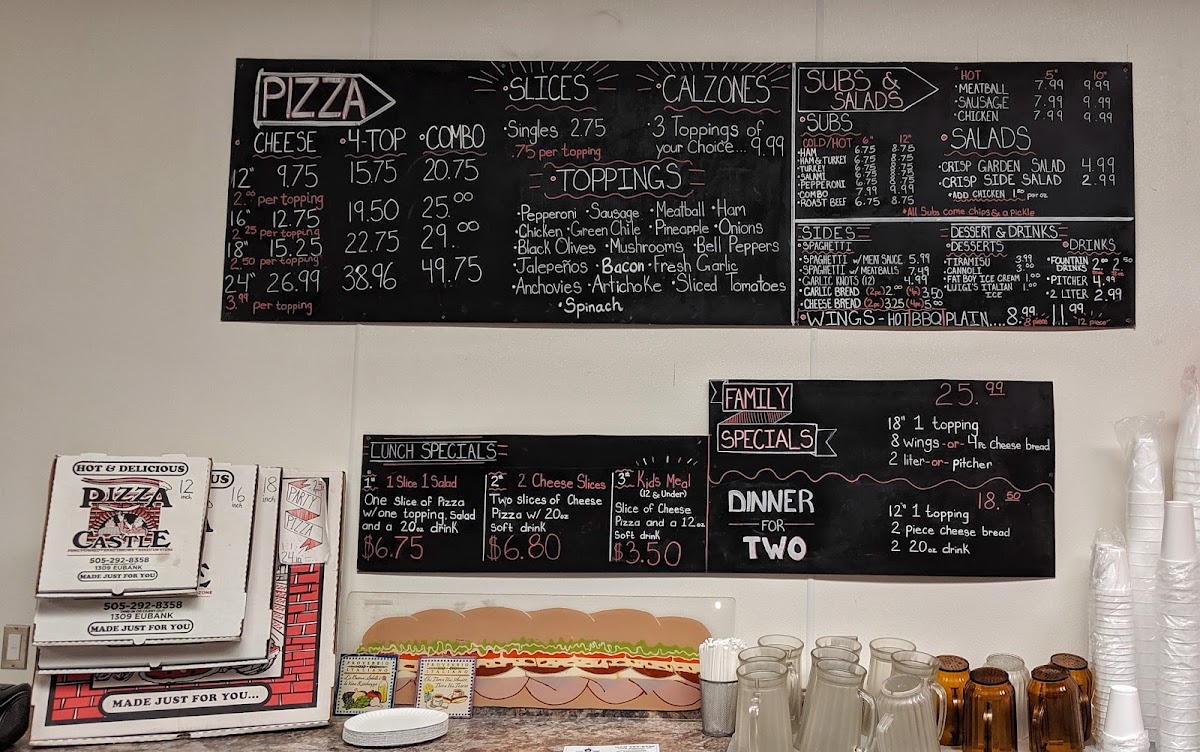 PIZZA
CHEESE •4-TOP •COMBO
12" 9.75 15.75 20.75
2.00 per topping
16" 12.75 19.50 25.00
2.25 per topping
18" 15.25 22.75 29.00
2.50 per topping
24" 26.99 38.96 49.75
3.99 per topping
•SLICES
•Singles 2.75
.75 per topping
•CALZONES
•3 Toppings of
your choice... 9.99
•TOPPINGS
•Pepperoni •Sausage •Meatball •Ham
•Chicken •Green Chile •Pineapple •Onions
•Black Olives •Mushrooms •Bell Peppers
•Jalepeños •Bacon •Fresh Garlic
•Anchovies •Artichoke •Sliced Tomatoes
•Spinach
SUBS &
SALADS
•SUBS
COLD/HOT 6" 12"
•HAM 6.75 8.75
•HAM & TURKEY 6.75 8.75
•TURKEY 6.75 8.75
•SALAMI 6.75 8.75
•PEPPERONI 6.75 8.75
•COMBO 7.99 9.99
•ROAST BEEF 6.75 8.75
HOT 5" 10"
•MEATBALL 7.99 9.99
•SAUSAGE 7.99 9.99
•CHICKEN 7.99 9.99
•SALADS
•CRISP GARDEN SALAD 4.99
•CRISP SIDE SALAD 2.99
•ADD CHICKEN 1.00 per oz
*All Subs come Chips & a pickle
SIDES
•SPAGHETTI
•SPAGHETTI W/ MEAT SAUCE 5.99
•SPAGHETTI W/ MEATBALLS 7.49
•GARLIC KNOTS (12) 4.99
•GARLIC BREAD (2pc) 2.00 (4pc) 3.50
•CHEESE BREAD (2pc) 3.25 (4pc) 5.00
•WINGS - HOT|BBQ|PLAIN.... 8.99 8 piece 11.99 12 piece
DESSERT & DRINKS
•DESSERTS
•TIRAMISU 3.99
•CANNOLI 3.00
•FAT BOY ICE CREAM 1.00
•LUIGI'S ITALIAN 1.00
ICE
•DRINKS
•FOUNTAIN 2.00 2.50
DRINKS
•PITCHER 4.99
•2 LITER 2.99
LUNCH SPECIALS
1st 1 Slice 1 Salad
One Slice of Pizza
w/one topping, Salad
and a 20oz drink
$6.75
2nd 2 Cheese Slices
Two slices of Cheese
Pizza w/ 20oz
soft drink
$6.80
3rd Kids Meal
(12 & Under)
Slice of Cheese
Pizza and a 12oz
Soft drink
$3.50
FAMILY
SPECIALS
25.99
18" 1 topping
8 wings -or- 4pc Cheese bread
2 liter -or- pitcher
DINNER
FOR
TWO
18.50
12" 1 topping
2 piece cheese bread
2 20oz drink
HOT & DELICIOUS
12
inch
PIZZA
CASTLE
505-292-8358
1309 EUBANK
MADE JUST FOR YOU
16
inch
505-292-8358
1309 EUBANK
MADE JUST FOR YOU
18
inch
PARTY
PIZZA
24 inch
MADE JUST FOR YOU...